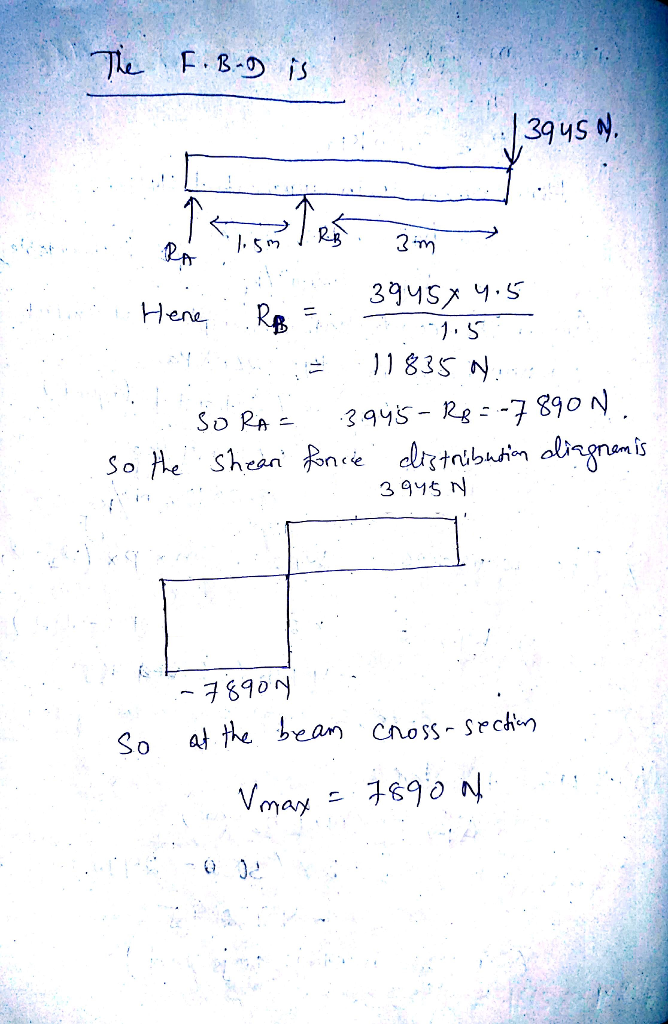 The F.B.D is
3945 N.
RA 1.5m RB 3m
Here, RB = 3945 x 4.5
1.5
= 11835 N.
SO RA = 3945 - RB = -7890 N.
So the shear force distribution diagram is
3945 N
- 7890N
So at the beam cross-section
Vmax = 7890 N